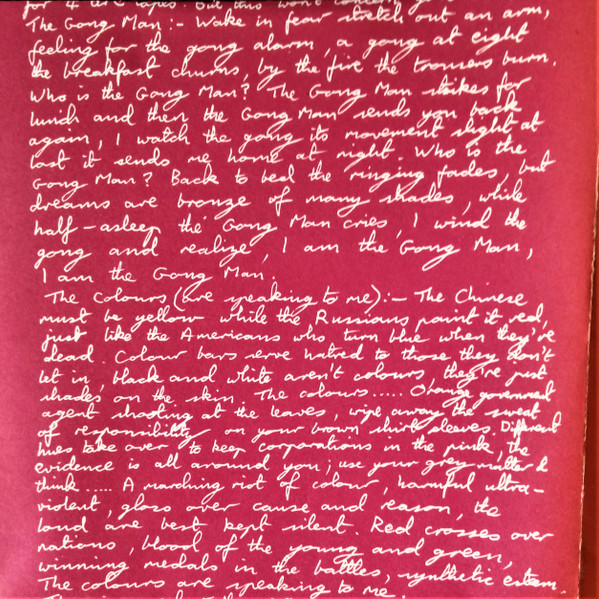 for 4 are tapes. But this won't concern
The Gong Man :- Wake in fear stretch out an arm,
feeling for the gong alarm, a gong at eight
the breakfast churns, by the fire the trousers burn.
Who is the Gong Man? The Gong Man strikes for
lunch and then the Gong Man sends you back
again, I watch the gong its movement slight at
last it sends me home at night. Who is the
Gong Man? Back to bed the ringing fades, but
dreams are bronze of many shades, while
half-asleep the Gong Man cries, I wind the
gong and realize, I am the Gong Man,
I am the Gong Man.
The Colours (are speaking to me) :- The Chinese
must be yellow while the Russians paint it red,
just like the Americans who turn blue when they're
dead. Colour bars serve hatred to those they don't
let in, black and white aren't colours, they're just
shades on the skin. The colours..... Orange government
agent shooting at the leaves, wipe away the sweat
of responsibility on your brown shirt sleeves. Different
hues take over to keep corporations in the pink, the
evidence is all around you; use your grey matter &
think.... A marching riot of colour, harmful ultra-
violent, gloss over cause and reason, the
loud are best kept silent. Red crosses over
nations, blood of the young and green,
winning medals in the battles, synthetic esteem.
The colours are speaking to me.